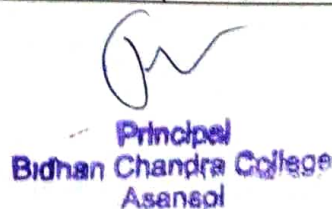 Principal
Bidhan Chandra College
Asansol